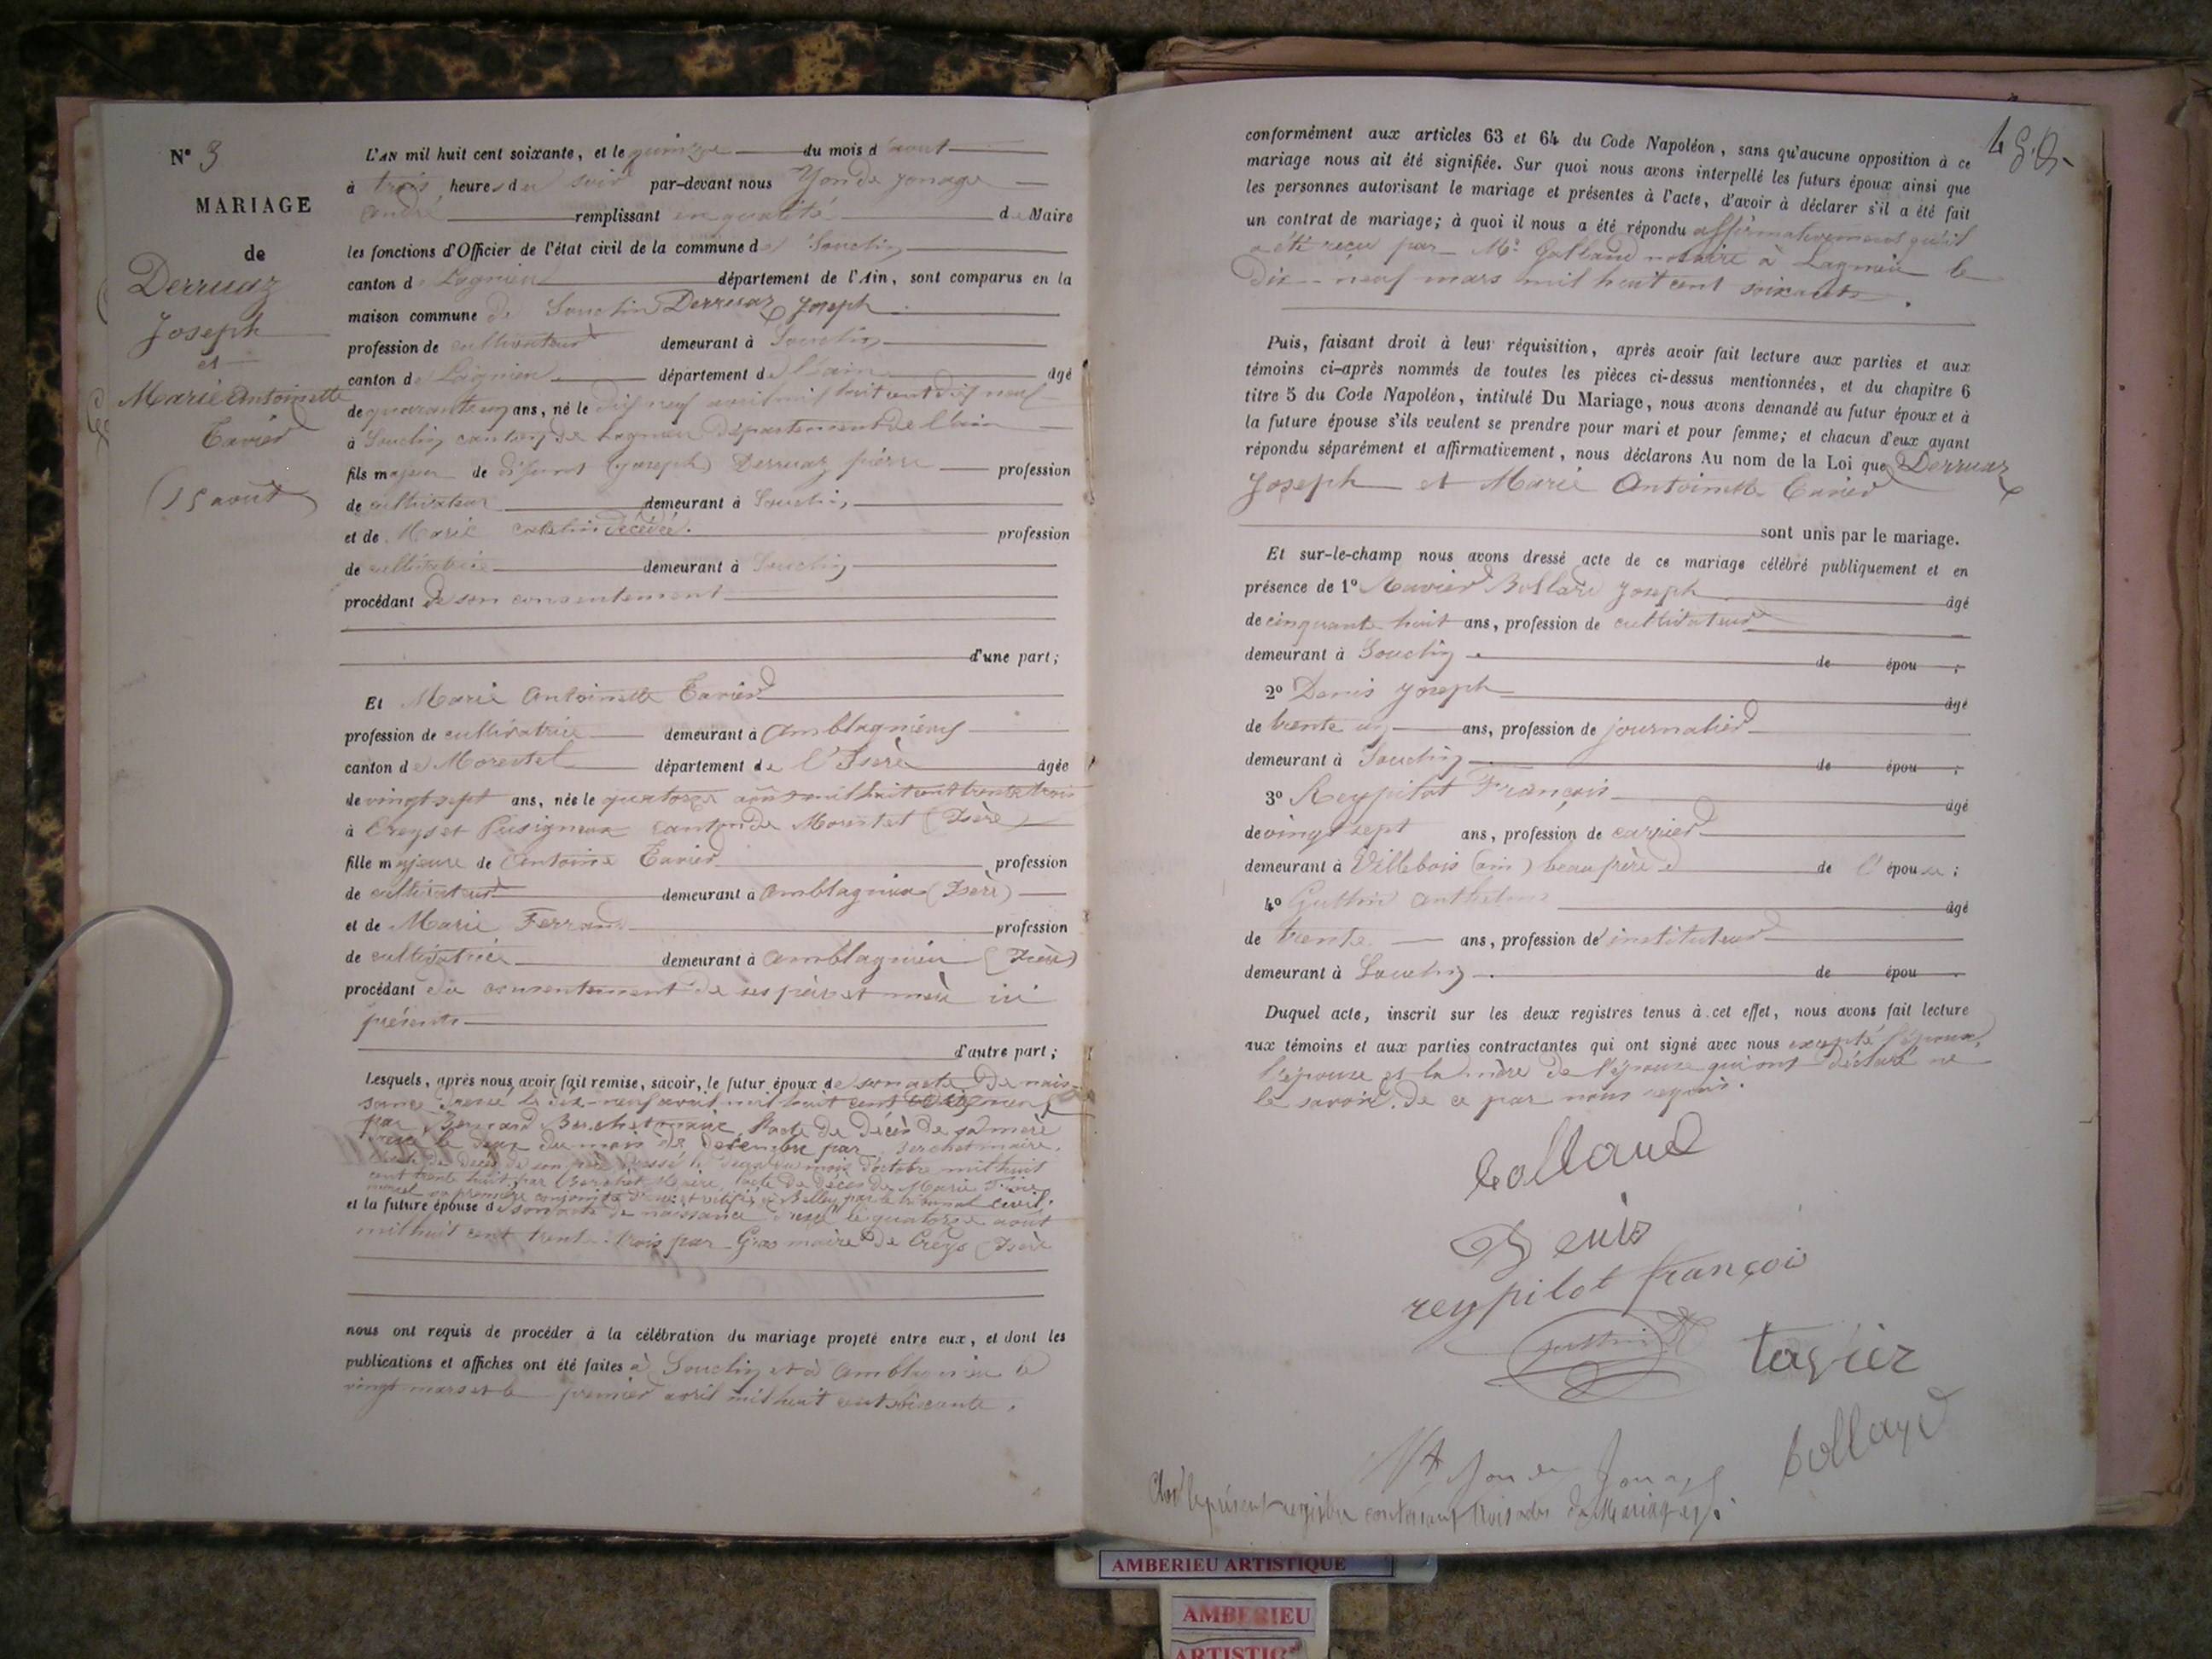 N° 3
MARIAGE
de
Derruaz
Joseph
et
Marie Antoinette
Tavier
(15 août)
L'AN mil huit cent soixante, et le quinze du mois d'aout
à trois heures du soir par-devant nous Yon de Jonage
andré remplissant en qualité de Maire
les fonctions d'Officier de l'état civil de la commune de Souclin
canton de Lagnieu département de l'Ain, sont comparus en la
maison commune de Souclin Derruaz Joseph
profession de cultivateur demeurant à Souclin
canton de Lagnieu département de l'ain âgé
de quarante un ans, né le dix neuf avril mil huit cent dix neuf
à Souclin canton de Lagnieu département de l'ain
fils majeur de défunt (joseph) Derruaz pierre profession
de cultivateur demeurant à Souclin
et de Marie décédée. profession
de cultivatrice demeurant à Souclin
procédant de son consentement
d'une part;
Et Marie Antoinette Tavier
profession de cultivatrice demeurant à amblagnieux
canton de Morestel département de l'Isère âgée
de vingt sept ans, née le quatorze août mil huit cent trente trois
à Creys et Pusignieux canton de Morestel (Isère)
fille majeure de Antoine Tavier profession
de cultivateur demeurant à amblagnieu (Isère)
et de Marie Ferrand profession
de cultivatrice demeurant à amblagnieu (Isère)
procédant du consentement de ses père et mère ici
présents
d'autre part;
Lesquels, après nous avoir fait remise, savoir, le futur époux de son acte de nais-
sance dressé le dix-neuf avril mil huit cent dix neuf
par Bernard Berchet maire, l'acte de décès de sa mère
dressé le deux du mois de décembre par Berchet maire.
l'acte de décès de son père dressé le du mois d'octobre mil huit
cent trente huit par Berchet Maire, l'acte de décès de Marie
sa première conjointe à Belley par le tribunal civil.
et la future épouse de son acte de naissance dressé le quatorze août
mil huit cent trente-trois par Gros maire de Creys (Isère
nous ont requis de procéder à la célébration du mariage projeté entre eux, et dont les
publications et affiches ont été faites à Souclin et à Amblagnieu le
vingt mars et le premier avril mil huit cent soixante.
conformément aux articles 63 et 64 du Code Napoléon, sans qu'aucune opposition à ce
mariage nous ait été signifiée. Sur quoi nous avons interpellé les futurs époux ainsi que
les personnes autorisant le mariage et présentes à l'acte, d'avoir à déclarer s'il a été fait
un contrat de mariage; à quoi il nous a été répondu affirmativement qu'il
a été reçu par Me Golland notaire à Lagnieu le
Dix-neuf mars mil huit cent soixante.
Puis, faisant droit à leur réquisition, après avoir fait lecture aux parties et aux
témoins ci-après nommés de toutes les pièces ci-dessus mentionnées, et du chapitre 6
titre 5 du Code Napoléon, intitulé Du Mariage, nous avons demandé au futur époux et à
la future épouse s'ils veulent se prendre pour mari et pour femme; et chacun d'eux ayant
répondu séparément et affirmativement, nous déclarons Au nom de la Loi que Derruaz
Joseph et Marie Antoinette Tavier
sont unis par le mariage.
Et sur-le-champ nous avons dressé acte de ce mariage célébré publiquement et en
présence de 1° Joseph âgé
de cinquante huit ans, profession de cultivateur
demeurant à Souclin de épou ;
2° Denis Joseph âgé
de trente un ans, profession de journalier
demeurant à Souclin de épou ;
3° Reypilot François âgé
de vingt sept ans, profession de carrier
demeurant à Villebois (ain) beau frère de l'épouse ;
4° Guttin Anthelme âgé
de trente ans, profession de instituteur
demeurant à Souclin de épou
Duquel acte, inscrit sur les deux registres tenus à cet effet, nous avons fait lecture
aux témoins et aux parties contractantes qui ont signé avec nous excepté l'époux,
l'épouse et la mère de l'épouse qui ont déclaré ne
le savoir. De ce par nous requis.
Collaud
Denis
reypilot françoi
guttin
tavier
Yon de Jonage
Clos le présent registre contenant trois actes de Mariages.
AMBERIEU ARTISTIQUE
AMBERIEU
ARTISTIQ